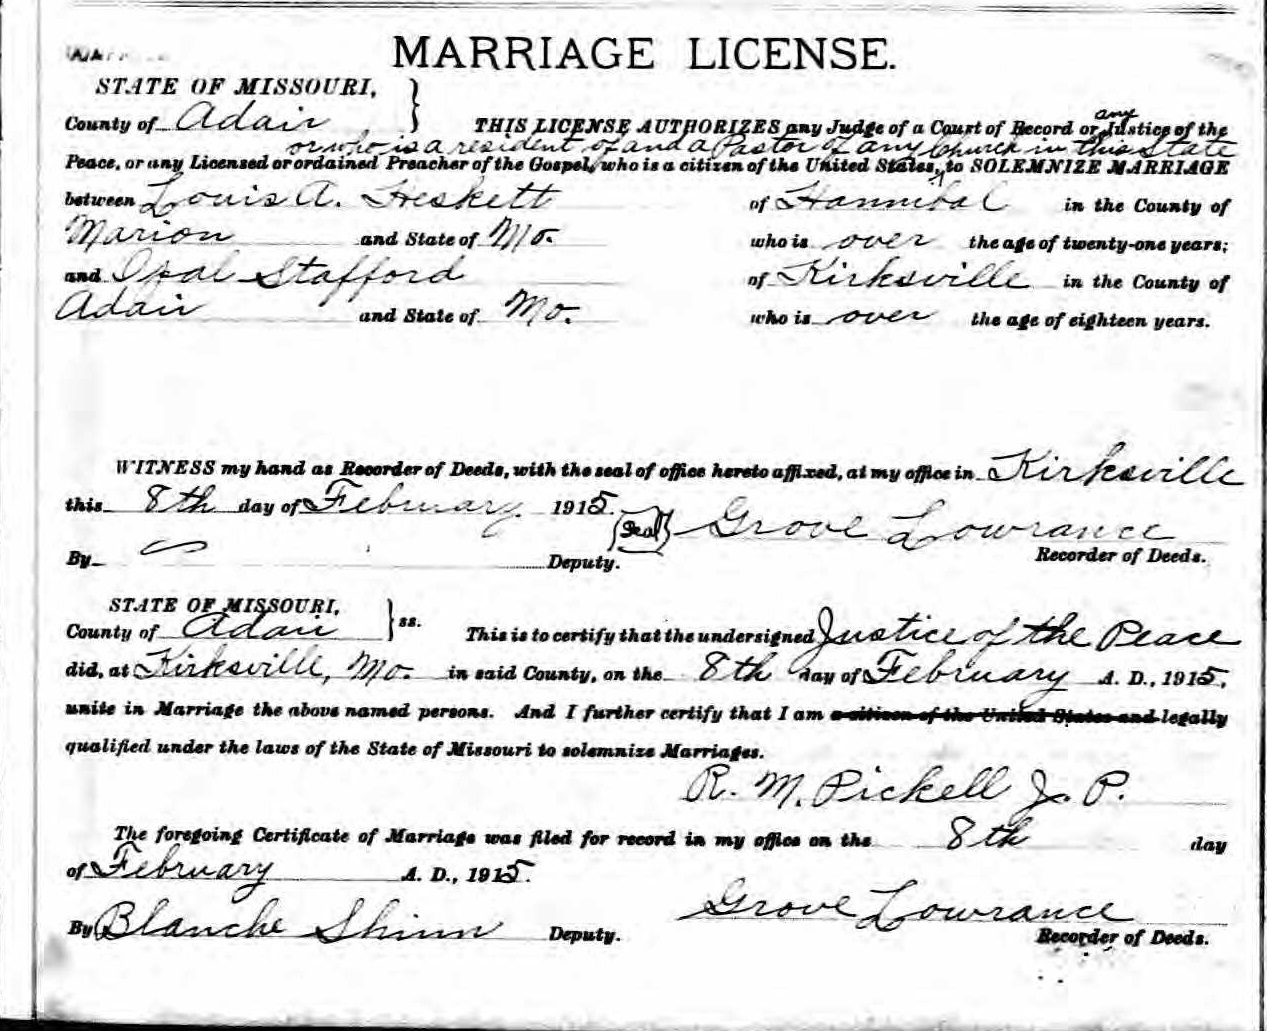 MARRIAGE LICENSE.
STATE OF MISSOURI,
County of Adair
any
THIS LICENSE AUTHORIZES any Judge of a Court of Record or Justice of the
or who is a resident of and a Pastor of any Church in this State
Peace, or any Licensed or ordained Preacher of the Gospel, who is a citizen of the United States, to SOLEMNIZE MARRIAGE
between Louis A. Heskett of Hannibal in the County of
Marion and State of Mo. who is over the age of twenty-one years;
and Opal Stafford of Kirksville in the County of
Adair and State of Mo. who is over the age of eighteen years.
WITNESS my hand as Recorder of Deeds, with the seal of office hereto affixed, at my office in Kirksville
this 8th day of February 1915. (Seal) Grove Lowrance
By Deputy. Recorder of Deeds.
STATE OF MISSOURI,
County of Adair ss. This is to certify that the undersigned Justice of the Peace
did, at Kirksville, Mo. in said County, on the 8th day of February A. D., 1915,
unite in Marriage the above named persons. And I further certify that I am a citizen of the United States and legally
qualified under the laws of the State of Missouri to solemnize Marriages.
R. M. Pickell J. P.
The foregoing Certificate of Marriage was filed for record in my office on the 8th day
of February A. D., 1915.
Grove Lowrance
By Blanche Shinn Deputy. Recorder of Deeds.